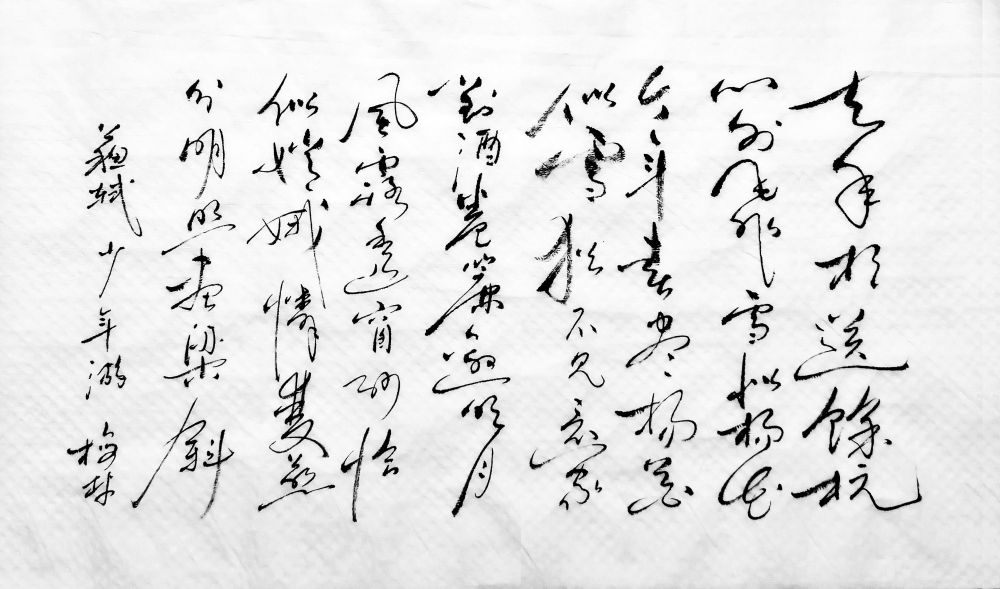 去年相送餘杭
門外飛雪似楊花
今年春盡楊花
似雪猶不見還家
對酒卷簾邀明月
風露透窗紗恰
似姮娥憐雙燕
分明照畫梁斜
蘇軾少年游